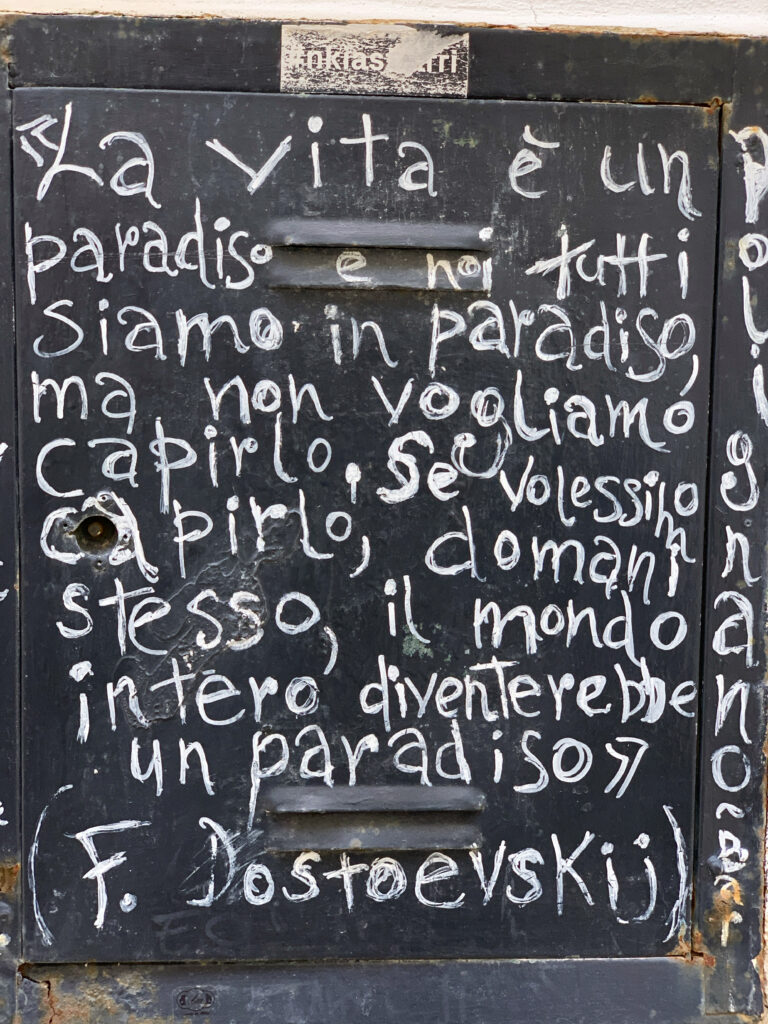 «La vita è un
paradiso e noi tutti
siamo in paradiso,
ma non vogliamo
capirlo. Se volessimo
capirlo, domani
stesso, il mondo
intero diventerebbe
un paradiso»
(F. Dostoevskij)
Polignano